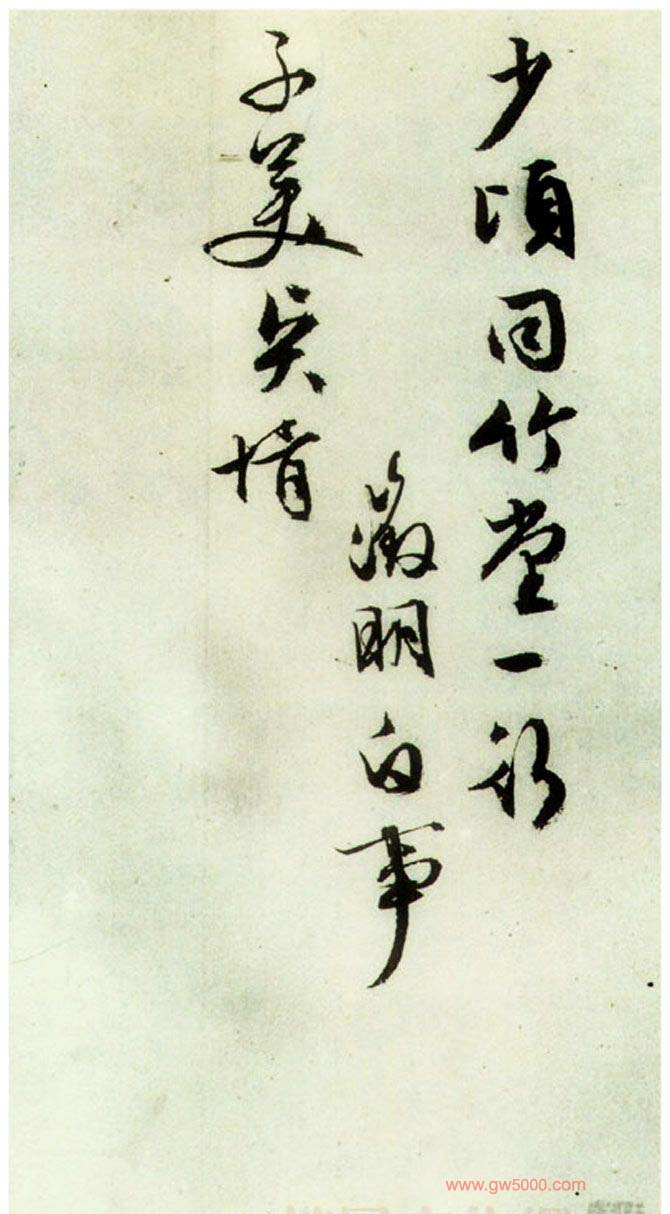 少頃同竹堂一行
徵明白事
子美賢壻
www.gw5000.com